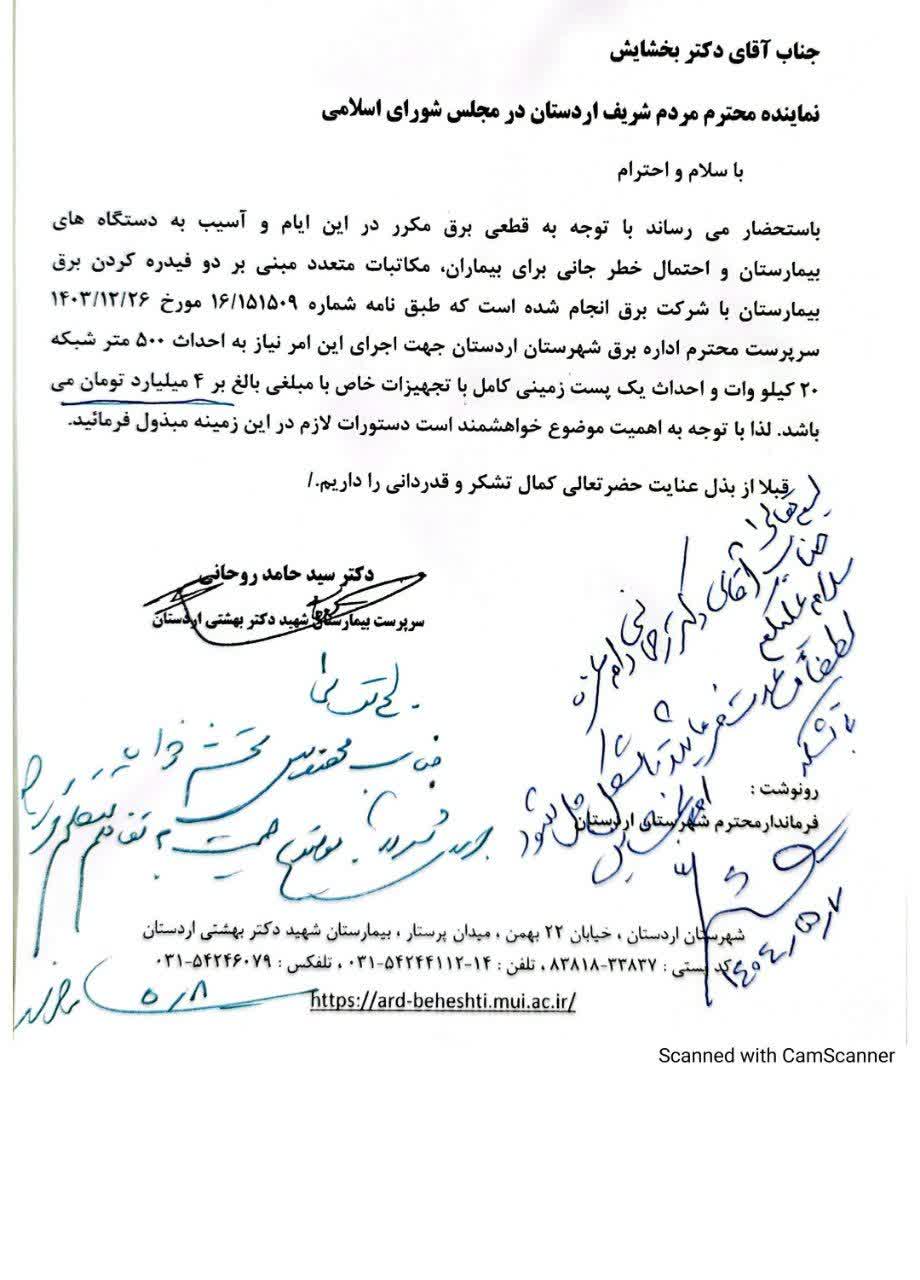 جناب آقای دکتر بخشایش
نماینده محترم مردم شریف اردستان در مجلس شورای اسلامی
با سلام و احترام
باستحضار می رساند با توجه به قطعی برق مکرر در این ایام و آسیب به دستگاه های
بیمارستان و احتمال خطر جانی برای بیماران، مکاتبات متعدد مبنی بر دو فیدره کردن برق
بیمارستان با شرکت برق انجام شده است که طبق نامه شماره ۱۶/۱۵۱۵۰۹ مورخ ۱۴۰۳/۱۲/۲۶
سرپرست محترم اداره برق شهرستان اردستان جهت اجرای این امر نیاز به احداث ۵۰۰ متر شبکه
۲۰ کیلو وات و احداث یک پست زمینی کامل با تجهیزات خاص با مبلغی بالغ بر ۴ میلیارد تومان می
باشد. لذا با توجه به اهمیت موضوع خواهشمند است دستورات لازم در این زمینه مبذول فرمائید.
قبلا از بذل عنایت حضرتعالی کمال تشکر و قدردانی را داریم./
دکتر سید حامد روحانی
سرپرست بیمارستان شهید دکتر بهشتی اردستان
بسمه تعالی
جناب آقای دکتر
سلام علیکم
لطفاً مساعدت فرمایید تا مشکل حل شود
با تشکر
۱۴۰۴/۵/۷
جناب مهندس
موضوع
۵/۸
رونوشت :
فرماندار محترم شهرستان اردستان
شهرستان اردستان ، خیابان ۲۲ بهمن ، میدان پرستار ، بیمارستان شهید دکتر بهشتی اردستان
کد پستی : ۳۳۸۳۷-۸۳۸۱۸ ، تلفن : ۱۴-۵۴۲۴۴۱۱۲-۰۳۱ ، تلفکس : ۵۴۲۴۶۰۷۹-۰۳۱
https://ard-beheshti.mui.ac.ir/
Scanned with CamScanner